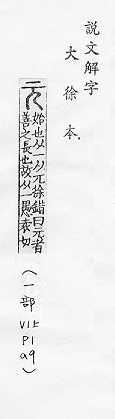 說文解字
大徐本.
元
始也从一从兀徐鍇曰元者
善之長也故从一愚袁切
(一部
V1上
P1
a9)